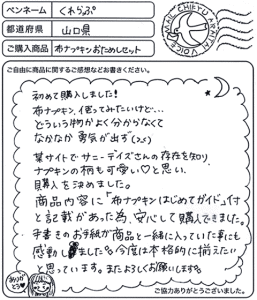 ペンネーム くれらぷ
都道府県 山口県
ご購入商品 布ナプキンおためしセット
MAIL CHIETU ARATAI VOICE
ご自由に商品に関するご感想などお書きください。
初めて購入しました!
布ナプキン、使ってみたいけど…
どういう物かよく分からなくて
なかなか勇気が出ず(>_<)
某サイトでサニーデイズさんの存在を知り、
ナプキンの柄も可愛い♡と思い、
購入を決めました。
商品内容に「布ナプキンはじめてガイド」付
と記載があった為、安心して購入できました。
手書きのお手紙が商品と一緒に入っていた事にも
感動しました。今度は本格的に揃えたい
と思っています。またよろしくお願いします。
ありがとう♥
ご協力ありがとうございました。